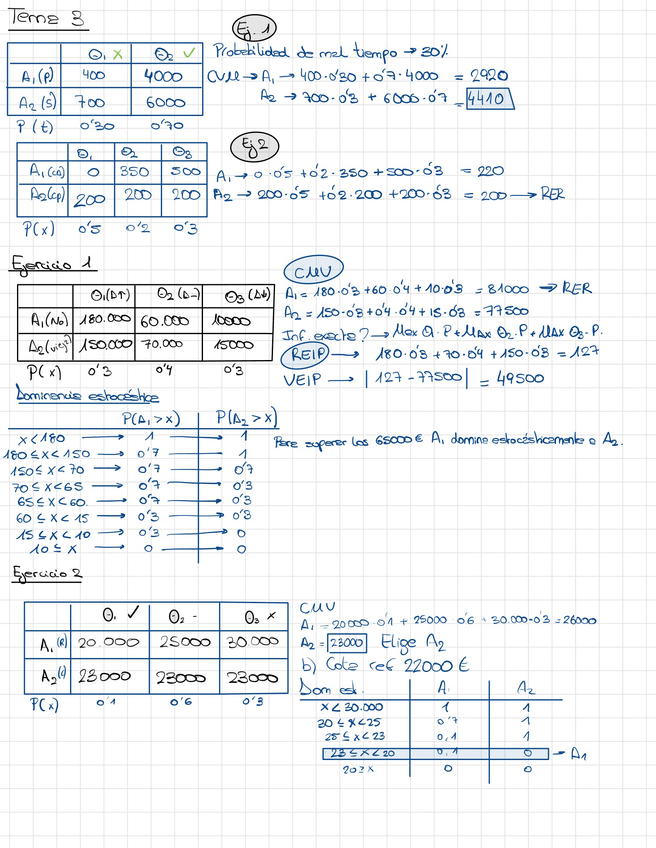 Tema 3
Ej. 1
θ₁ x θ₂ ✓
A₁(p) 400 4000
A₂(s) 700 6000
P(t) 0'30 0'70
Probabilidad de mal tiempo → 30%
CVM → A₁ → 400·0'30 + 0'7·4000 = 2920
A₂ → 700·0'3 + 6000·0'7 = 4410
Ej 2
θ₁ θ₂ θ₃
A₁(ca) 0 350 500
A₂(cp) 200 200 200
P(x) 0'5 0'2 0'3
A₁ → 0·0'5 + 0'2·350 + 500·0'3 = 220
A₂ → 200·0'5 + 0'2·200 + 200·0'3 = 200 → RER
Ejercicio 1
θ₁(D↑) θ₂(D-) θ₃(D↓)
A₁(No) 180.000 60.000 10000
A₂(viej) 150.000 70.000 15000
P(x) 0'3 0'4 0'3
CMV
A₁ = 180·0'3 + 60·0'4 + 10·0'3 = 81000 → RER
A₂ = 150·0'3 + 0'4·0'4 + 15·0'3 = 77500
Inf. exacta? → Max θ₁·P + Max θ₂·P + Max θ₃·P.
REIP → 180·0'3 + 70·0'4 + 150·0'3 = 127
VEIP → |127 - 77500| = 49500
Dominancia estocástica
P(A₁ > x) P(A₂ > x)
x < 180 → 1 → 1
180 ≤ x < 150 → 0'7 → 1
150 ≤ x < 70 → 0'7 → 0'7
70 ≤ x < 65 → 0'7 → 0'3
65 ≤ x < 60 → 0'7 → 0'3
60 ≤ x < 15 → 0'3 → 0'3
15 ≤ x < 10 → 0'3 → 0
10 ≤ x → 0 → 0
Para superar los 65000 € A₁ domina estocásticamente a A₂.
Ejercicio 2
θ₁ ✓ θ₂ - θ₃ x
A₁(R) 20.000 25000 30.000
A₂(c) 23000 23000 23000
P(x) 0'1 0'6 0'3
CMV
A₁ = 20000·0'1 + 25000·0'6 + 30.000·0'3 = 26000
A₂ = 23000 Elige A₂
b) Cota ref 22000 €
Dom est. A₁ A₂
x < 30.000 1 1
30 ≤ x < 25 0'7 1
25 ≤ x < 23 0,1 1
23 ≤ x < 20 0,1 0 → A₁
20 ≥ x 0 0